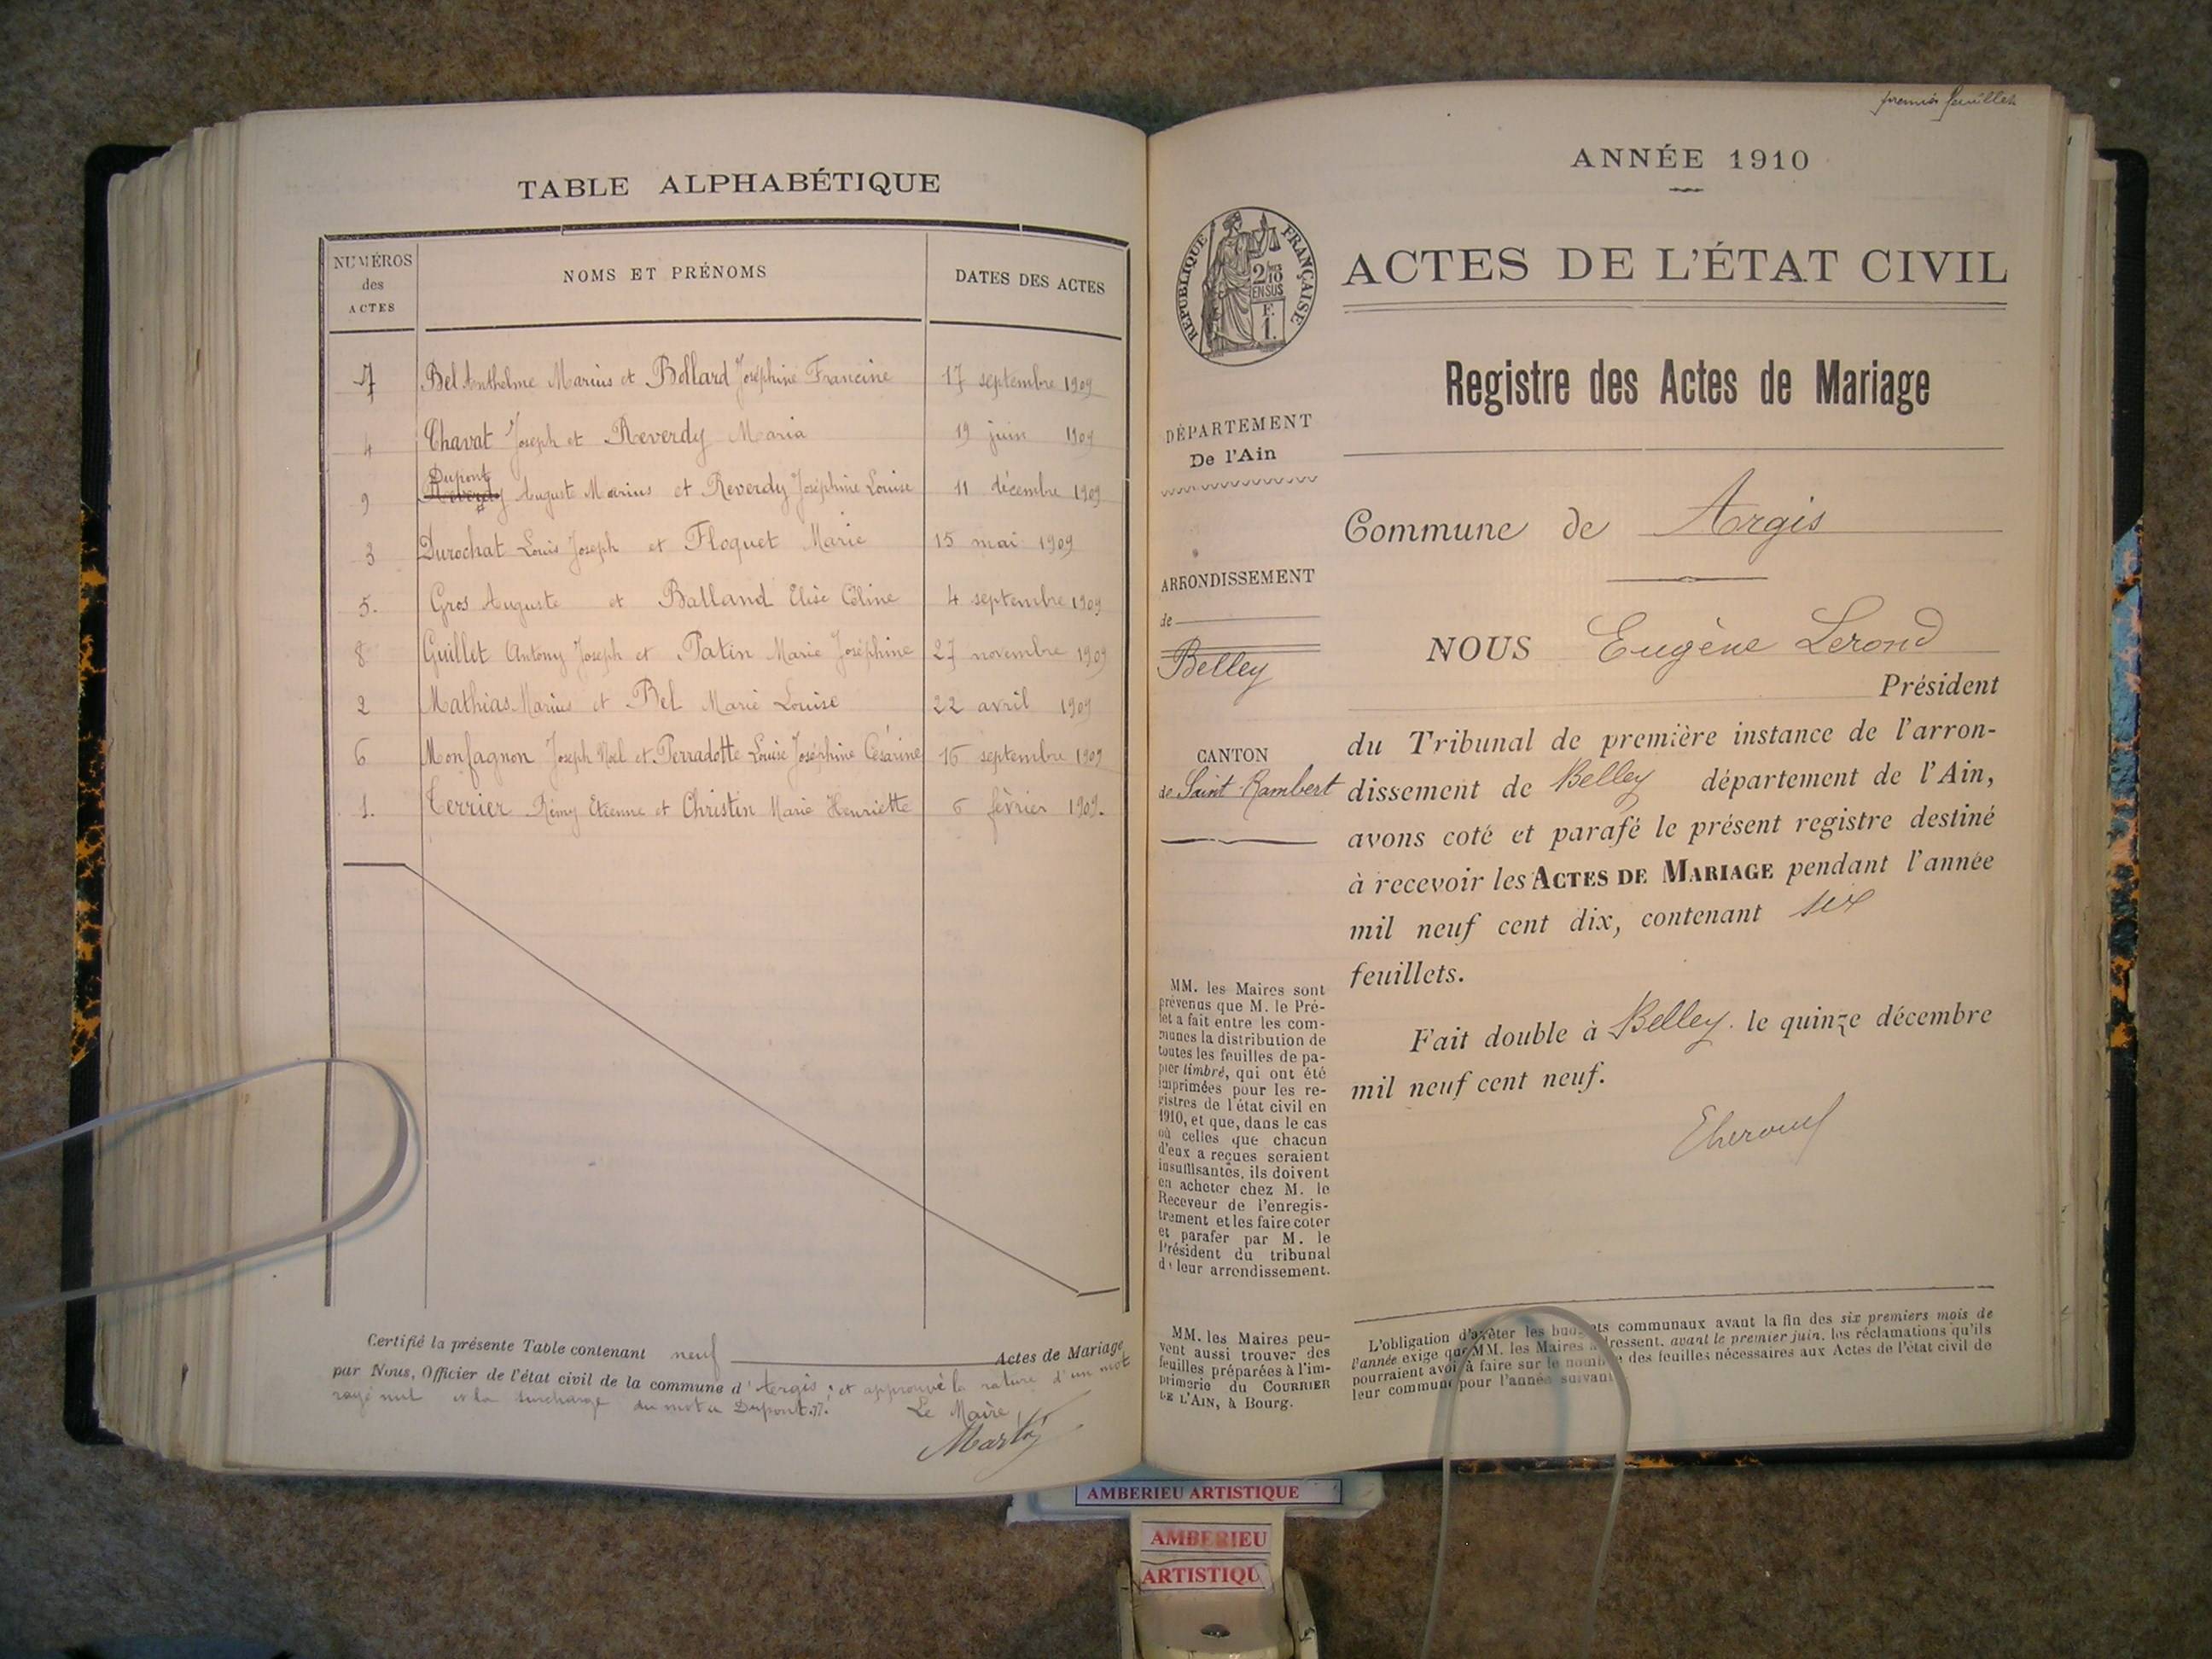 TABLE ALPHABÉTIQUE
NUMÉROS
des
ACTES
NOMS ET PRÉNOMS
DATES DES ACTES
7 Bel Anthelme Marius et Bollard Joséphine Francine 17 septembre 1909
4 Chavat Joseph et Reverdy Maria 19 juin 1909
Dupont
9 Reverdy Auguste Marius et Reverdy Joséphine Louise 11 décembre 1909
3 Durochat Louis Joseph et Floquet Marie 15 mai 1909
5. Gros Auguste et Balland Elise Céline 4 septembre 1909
8 Guillet Antony Joseph et Patin Marie Joséphine 27 novembre 1909
2 Mathias Marius et Bel Marie Louise 22 avril 1909
6 Monfagnon Joseph Noel et Perradotte Louise Joséphine Césarine 16 septembre 1909
1. Terrier Rémy Etienne et Christin Marie Henriette 6 février 1909.
Certifié la présente Table contenant neuf Actes de Mariage
par Nous, Officier de l'état civil de la commune d'Argis; et approuvé la rature d'un mot
rayé nul et la surcharge du mot Dupont.
Le Maire,
Martin
premier feuillet
ANNÉE 1910
RÉPUBLIQUE FRANÇAISE
2/10
EN SUS
F.
1.
ACTES DE L'ÉTAT CIVIL
Registre des Actes de Mariage
DÉPARTEMENT
De l'Ain
ARRONDISSEMENT
de
Belley
CANTON
de Saint-Rambert
MM. les Maires sont
prévenus que M. le Pré-
fet a fait entre les com-
munes la distribution de
toutes les feuilles de pa-
pier timbré, qui ont été
imprimées pour les re-
gistres de l'état civil en
1910, et que, dans le cas
où celles que chacun
d'eux a reçues seraient
insuffisantes, ils doivent
en acheter chez M. le
Receveur de l'enregis-
trement et les faire coter
et parafer par M. le
Président du tribunal
de leur arrondissement.
MM. les Maires peu-
vent aussi trouver des
feuilles préparées à l'im-
primerie du COURRIER
DE L'AIN, à Bourg.
Commune de Argis
NOUS Eugène Lerond
Président
du Tribunal de première instance de l'arron-
dissement de Belley département de l'Ain,
avons coté et parafé le présent registre destiné
à recevoir les ACTES DE MARIAGE pendant l'année
mil neuf cent dix, contenant six
feuillets.
Fait double à Belley. le quinze décembre
mil neuf cent neuf.
L'obligation d'arrêter les budgets communaux avant la fin des six premiers mois de
l'année exige que MM. les Maires adressent, avant le premier juin, les réclamations qu'ils
pourraient avoir à faire sur le nombre des feuilles nécessaires aux Actes de l'état civil de
leur commune pour l'année suivant
AMBERIEU ARTISTIQUE
AMBERIEU
ARTISTIQU